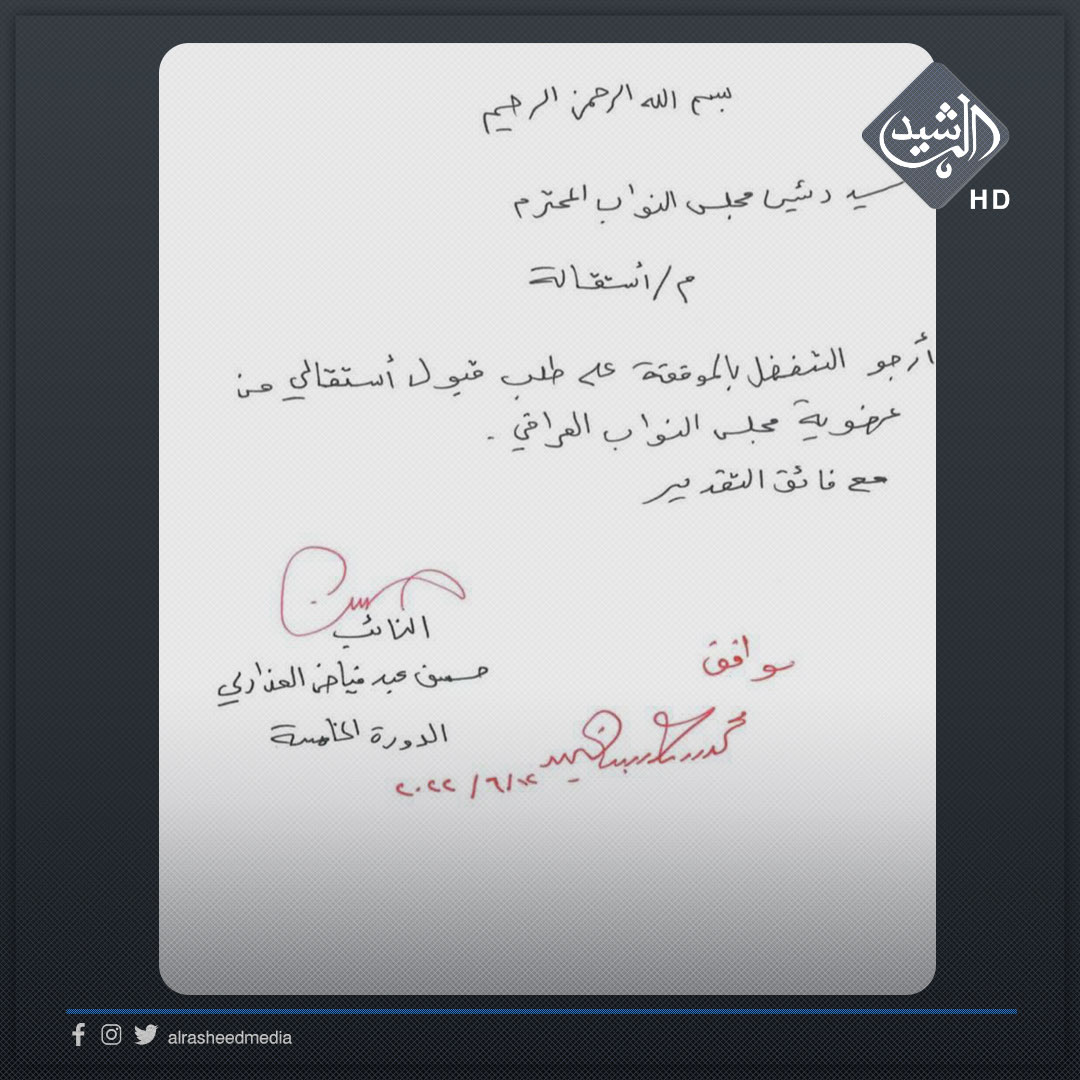 بسم الله الرحمن الرحيم
الرشيد
HD
سيد رئيس مجلس النواب المحترم
م/أستقالة
أرجو التفضل بالموفقة على طلب قبول أستقالي من
عضوية مجلس النواب العراقي .
مع فائق التقدير
النائب
حسين عبد فياض العذاري
الدورة الخامسة
موافق
٢٠٢٢/٦/١٢
alrasheedmedia